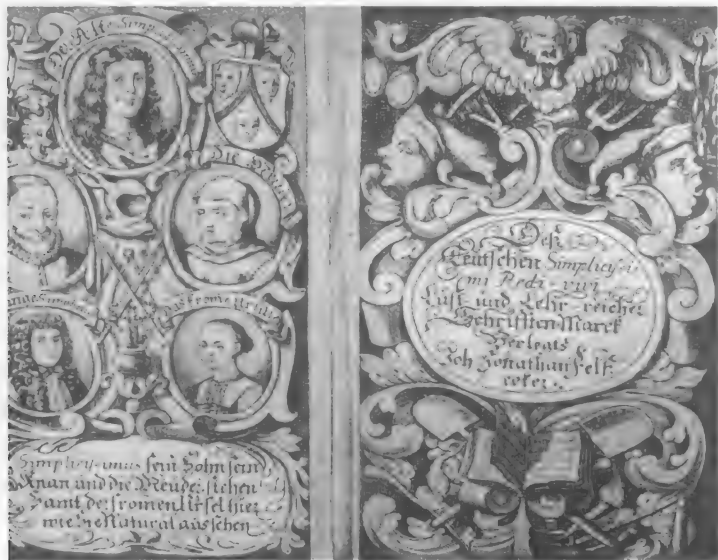 Der Alte Simplicissimus
Die Meuder
Junge Simplici
Das fromme Ursele
Simplicissimus sein Sohn sein
Knan und die Meuder sichen
Samt der fromen Ursel hier
wie sie Natural aussehen
Deß
Teutschen Simplicissi
mi Redi-vivi
Lust und Lehr-reicher
Schrifften Marck
Verlegts
Joh Jonathan Felß
ecker